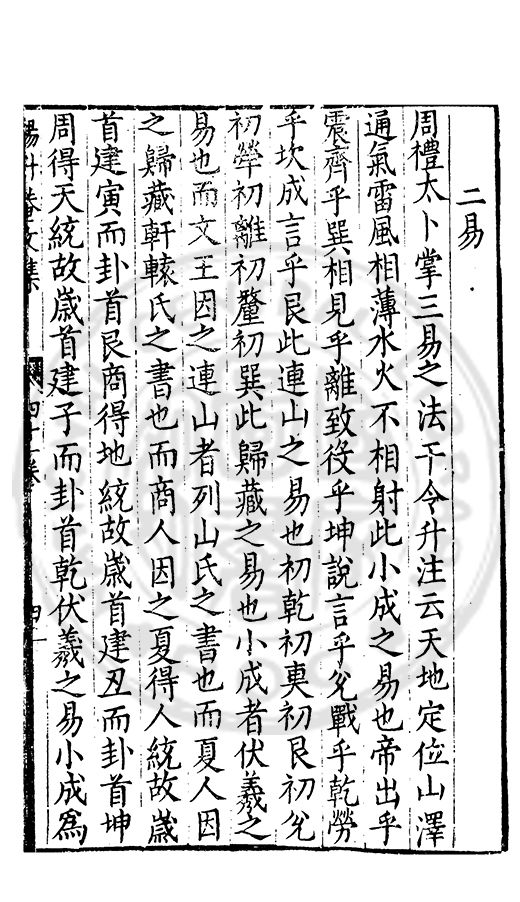 二易
周禮太卜掌三易之法干令升注云天地定位山澤
通氣雷風相薄水火不相射此小成之易也帝出乎
震齊乎巽相見乎離致役乎坤說言乎兊戰乎乾勞
乎坎成言乎艮此連山之易也初乾初𠀬初艮初兊
初犖初離初釐初巽此歸藏之易也小成者伏羲之
易也而文王因之連山者列山氏之書也而夏人因
之歸藏軒轅氏之書也而商人因之夏得人統故歲
首建寅而卦首艮商得地統故歲首建丑而卦首坤
周得天統故歲首建子而卦首乾伏羲之易小成爲